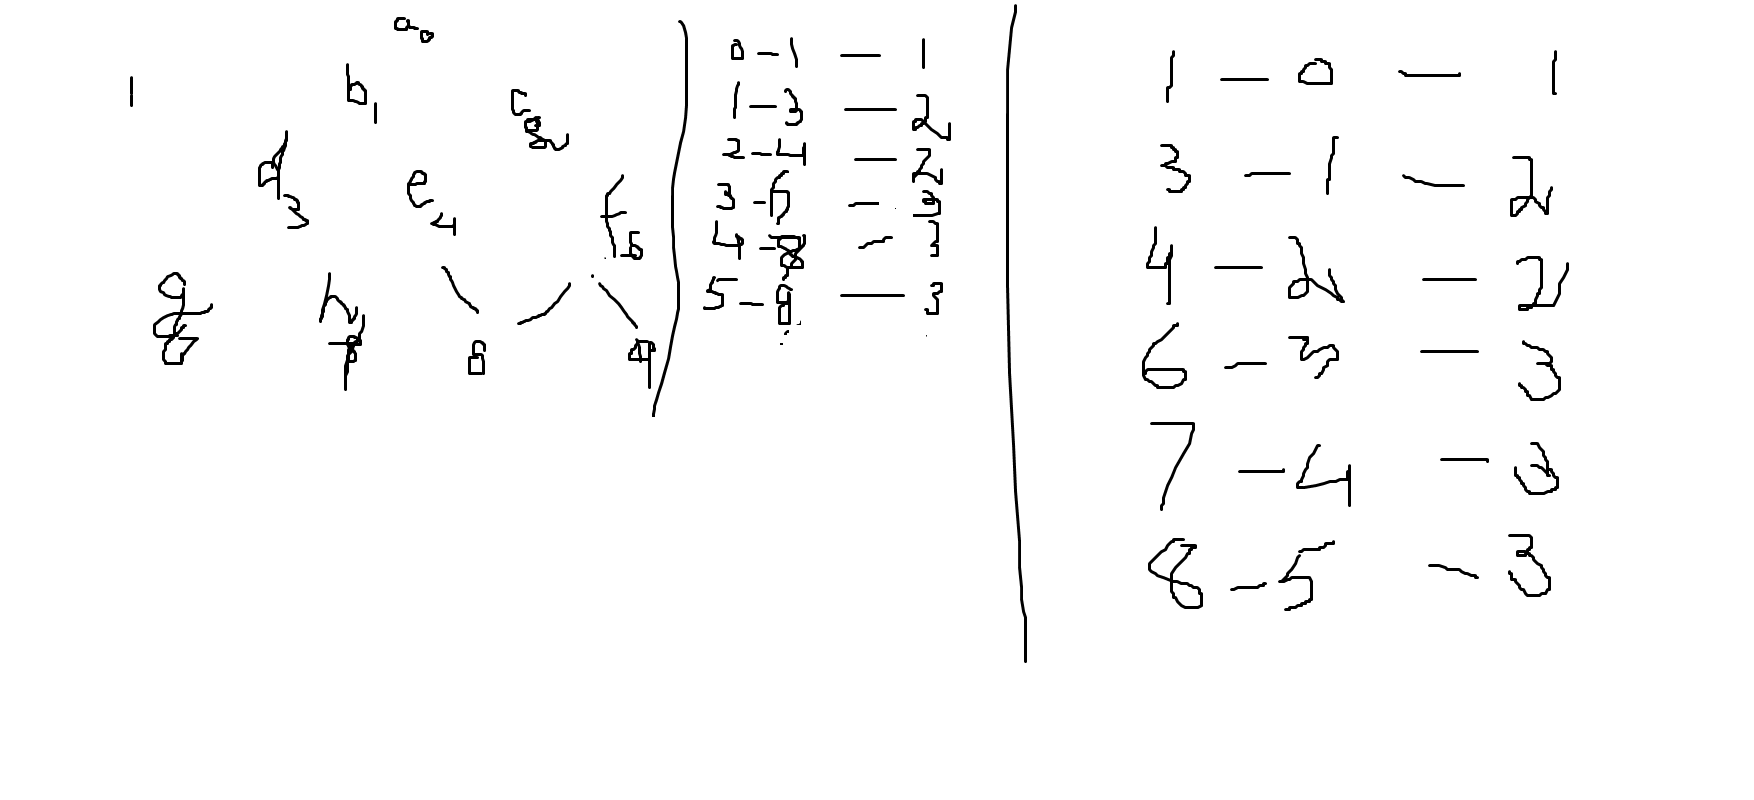 a0
1 b1 c2
d3 e4 f5
g6 h7 8 9
0 - 1 — 1
1 - 3 — 2
2 - 4 — 2
3 - 6 — 3
4 - 7 — 3
5 - 8 — 3
1 — 0 — 1
3 — 1 — 2
4 — 2 — 2
6 — 3 — 3
7 — 4 — 3
8 — 5 — 3